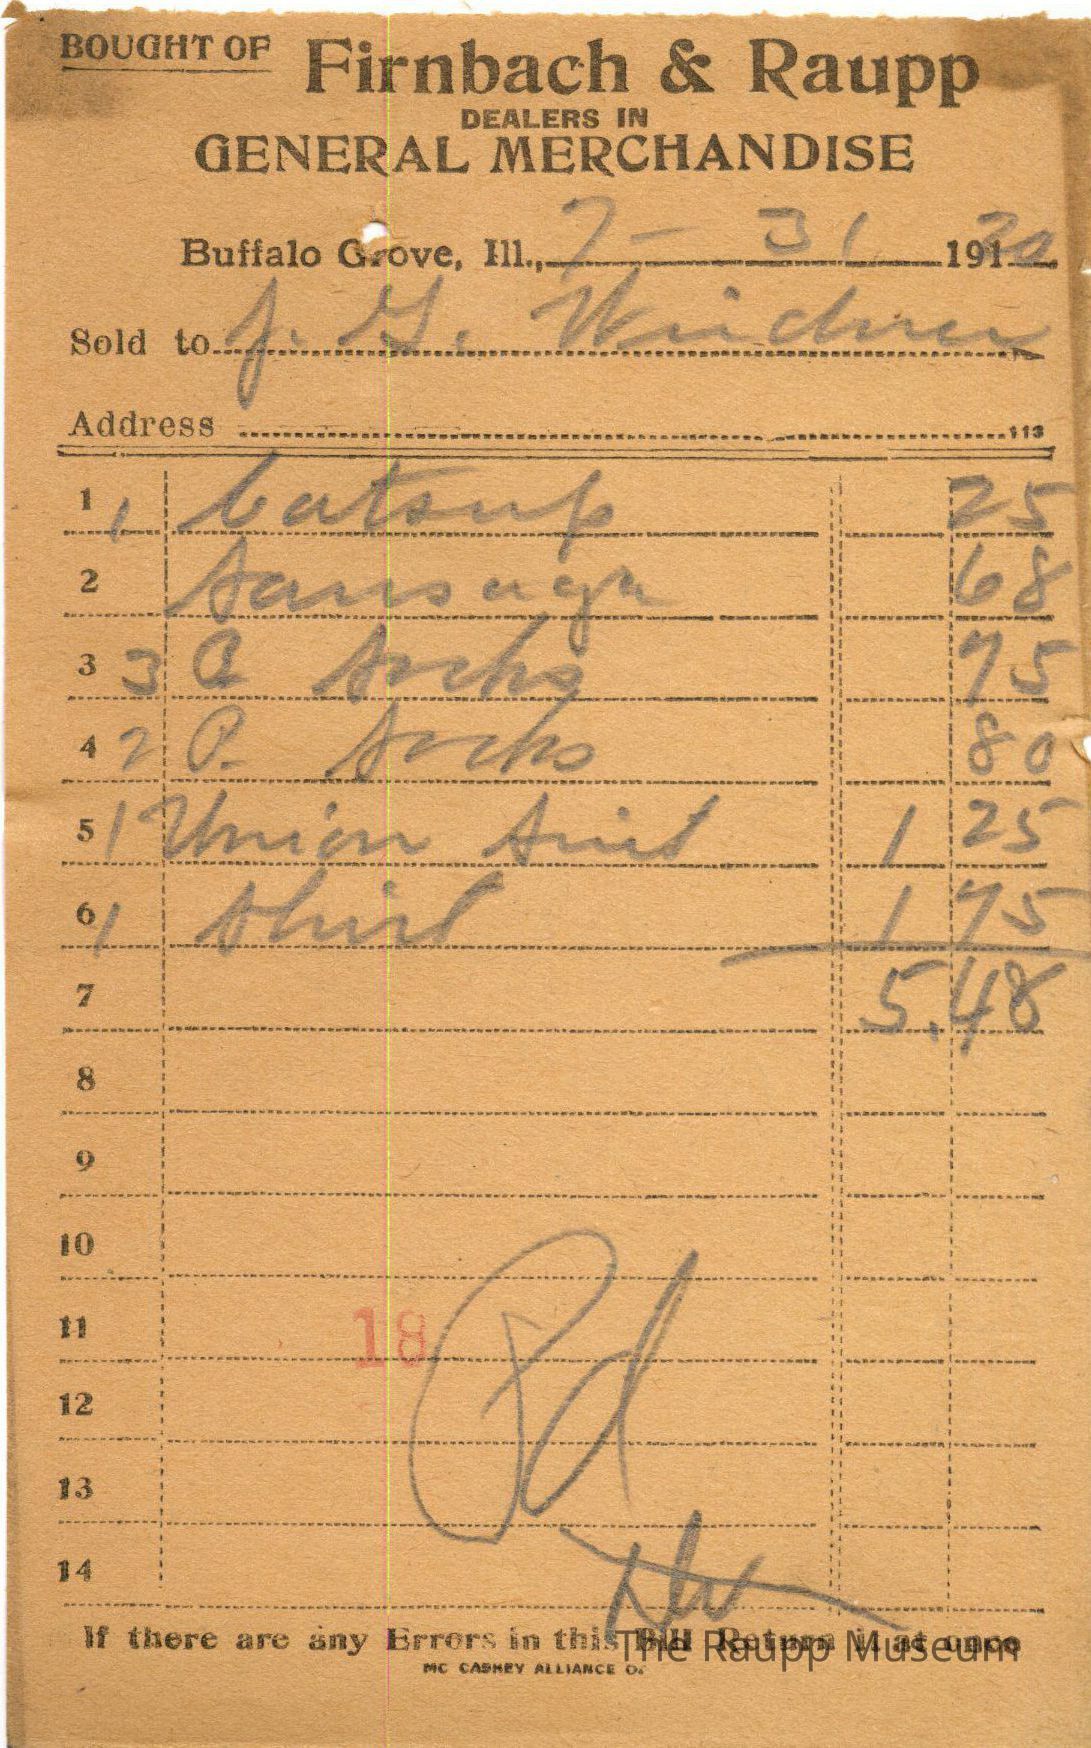 BOUGHT OF Firnbach & Raupp
DEALERS IN
GENERAL MERCHANDISE
Buffalo Grove, Ill., 7-31 1920
Sold to J. G.
Address 113
1 1 Catsup 25
2 Sausage 68
3 3 P Socks 75
4 2 P. Socks 80
5 1 Union Suit 1 25
6 1 Shirt 1 75
7 5.48
8
9
10
11 18
12 Pd
13
14
If there are any Errors in this Bill Return it at once
The Raupp Museum
MC CASKEY ALLIANCE O.